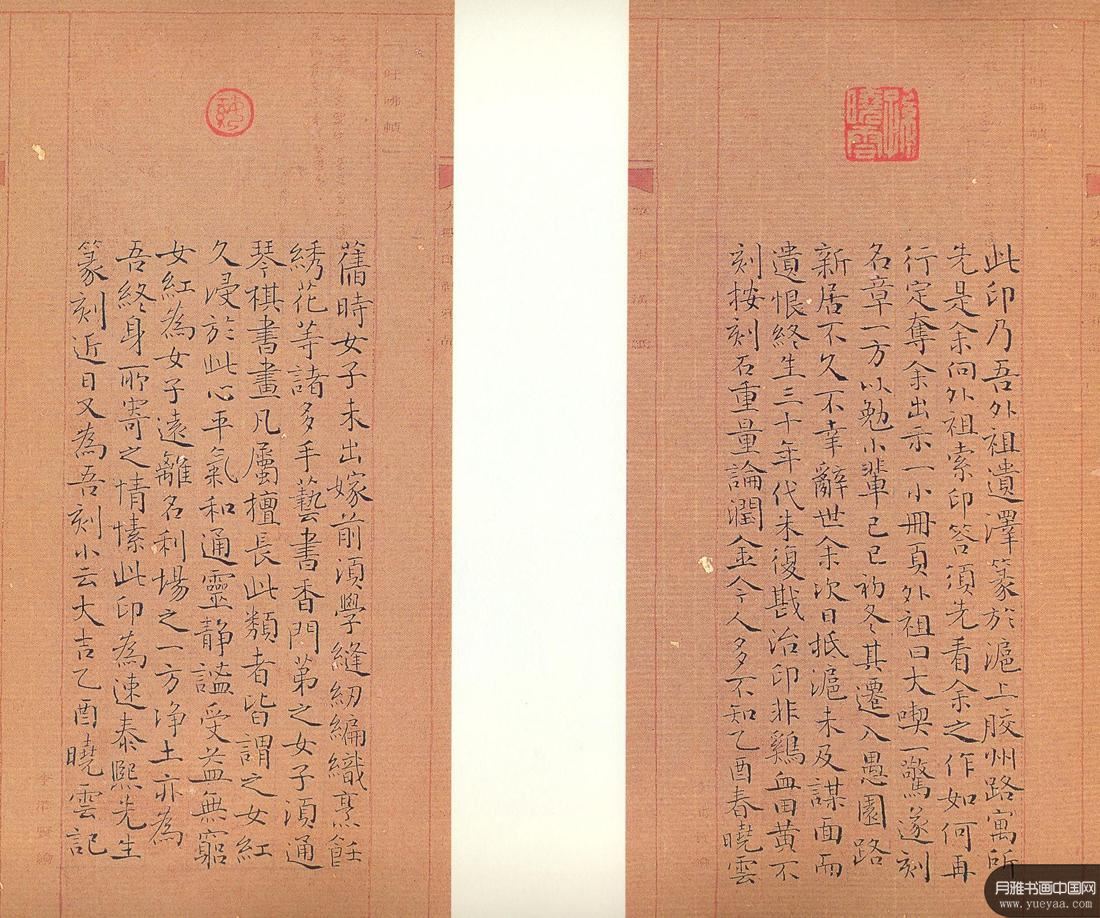 此印乃吾外祖遺澤篆於滬上胶州路寓所
先是余向外祖索印答須先看余之作如何再
行定奪余出示一小冊頁外祖曰大喫一驚遂刻
名章一方以勉小輩己巳初冬其遷入愚園路
新居不久不幸辭世余次日抵滬未及謀面而
遺恨終生三十年代朱復戡治印非鷄血田黄不
刻按刻石重量論潤金今人多不知乙酉春曉雲
舊時女子未出嫁前須學縫紉編織烹飪
綉花等諸多手藝書香門第之女子須通
琴棋書畫凡屬檀長此類者皆謂之女紅
久浸於此心平氣和通靈静謐受益無窮
女紅為女子遠離名利場之一方净土亦為
吾終身所寄之情愫此印為速泰熙先生
篆刻近日又為吾刻小云大吉乙酉曉雲記
月雅书画中国网
www.yueyaa.com